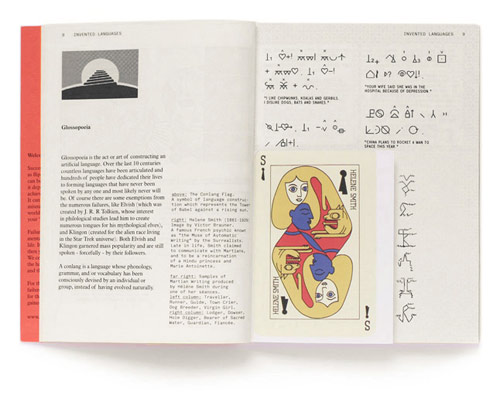 8 INVENTED LANGUAGES
Glossopoeia
Glossopoeia is the act or art of constructing an
artificial language. Over the last 10 centuries
countless languages have been articulated and
hundreds of people have dedicated their lives
to forming languages that have never been
spoken by any one and most likely never will
be. Of course there are some exemptions from
the numerous failures, like Elvish (which was
created by J. R. R Tolkien, whose interest
in philology studies lead him to create
numerous tongues for his mythological elves), and
Klingon (created for the alien race living
in the Star Trek universe). Both Elvish and
Klingon generated mass popularity and are still
spoken - forcefully - by their followers.
A conlang is a language whose phonology,
grammar, and/or vocabulary has been
consciously devised by an individual or
group, instead of having evolved naturally.
above: The Conlang Flag.
A symbol of language construc-
tion which represents the Tower
of Babel against a rising sun.
right: Helene Smith
Image by Victor Brauner.
A famous French psychic known
as "the Muse of Automatic
Writing" by the Surrealists.
Late in life, Smith claimed
to communicate with Martians,
and to be a reincarnation
of a Hindu princess and
Marie Antoinette.
far right: Samples of
Martian Writing produced
by Hélène Smith during
one of her séances.
left column: Traveller,
Runner, Guide, Town Crier,
Dog Breeder, Virgin Girl,
right column: Lodger, Dowser,
Hole Digger, Bearer of Sacred
Water, Guardian, Fiancée.
INVENTED LANGUAGES 9
"I LIKE CHIPMUNKS, KOALAS AND GERBILS.
I DISLIKE DOGS, BATS AND SNAKES."
"YOUR WIFE SAID SHE WAS IN THE
HOSPITAL BECAUSE OF DEPRESSION."
"CHINA PLANS TO ROCKET A MAN TO
SPACE THIS YEAR."
S
HELENE SMITH
HELENE SMITH
S